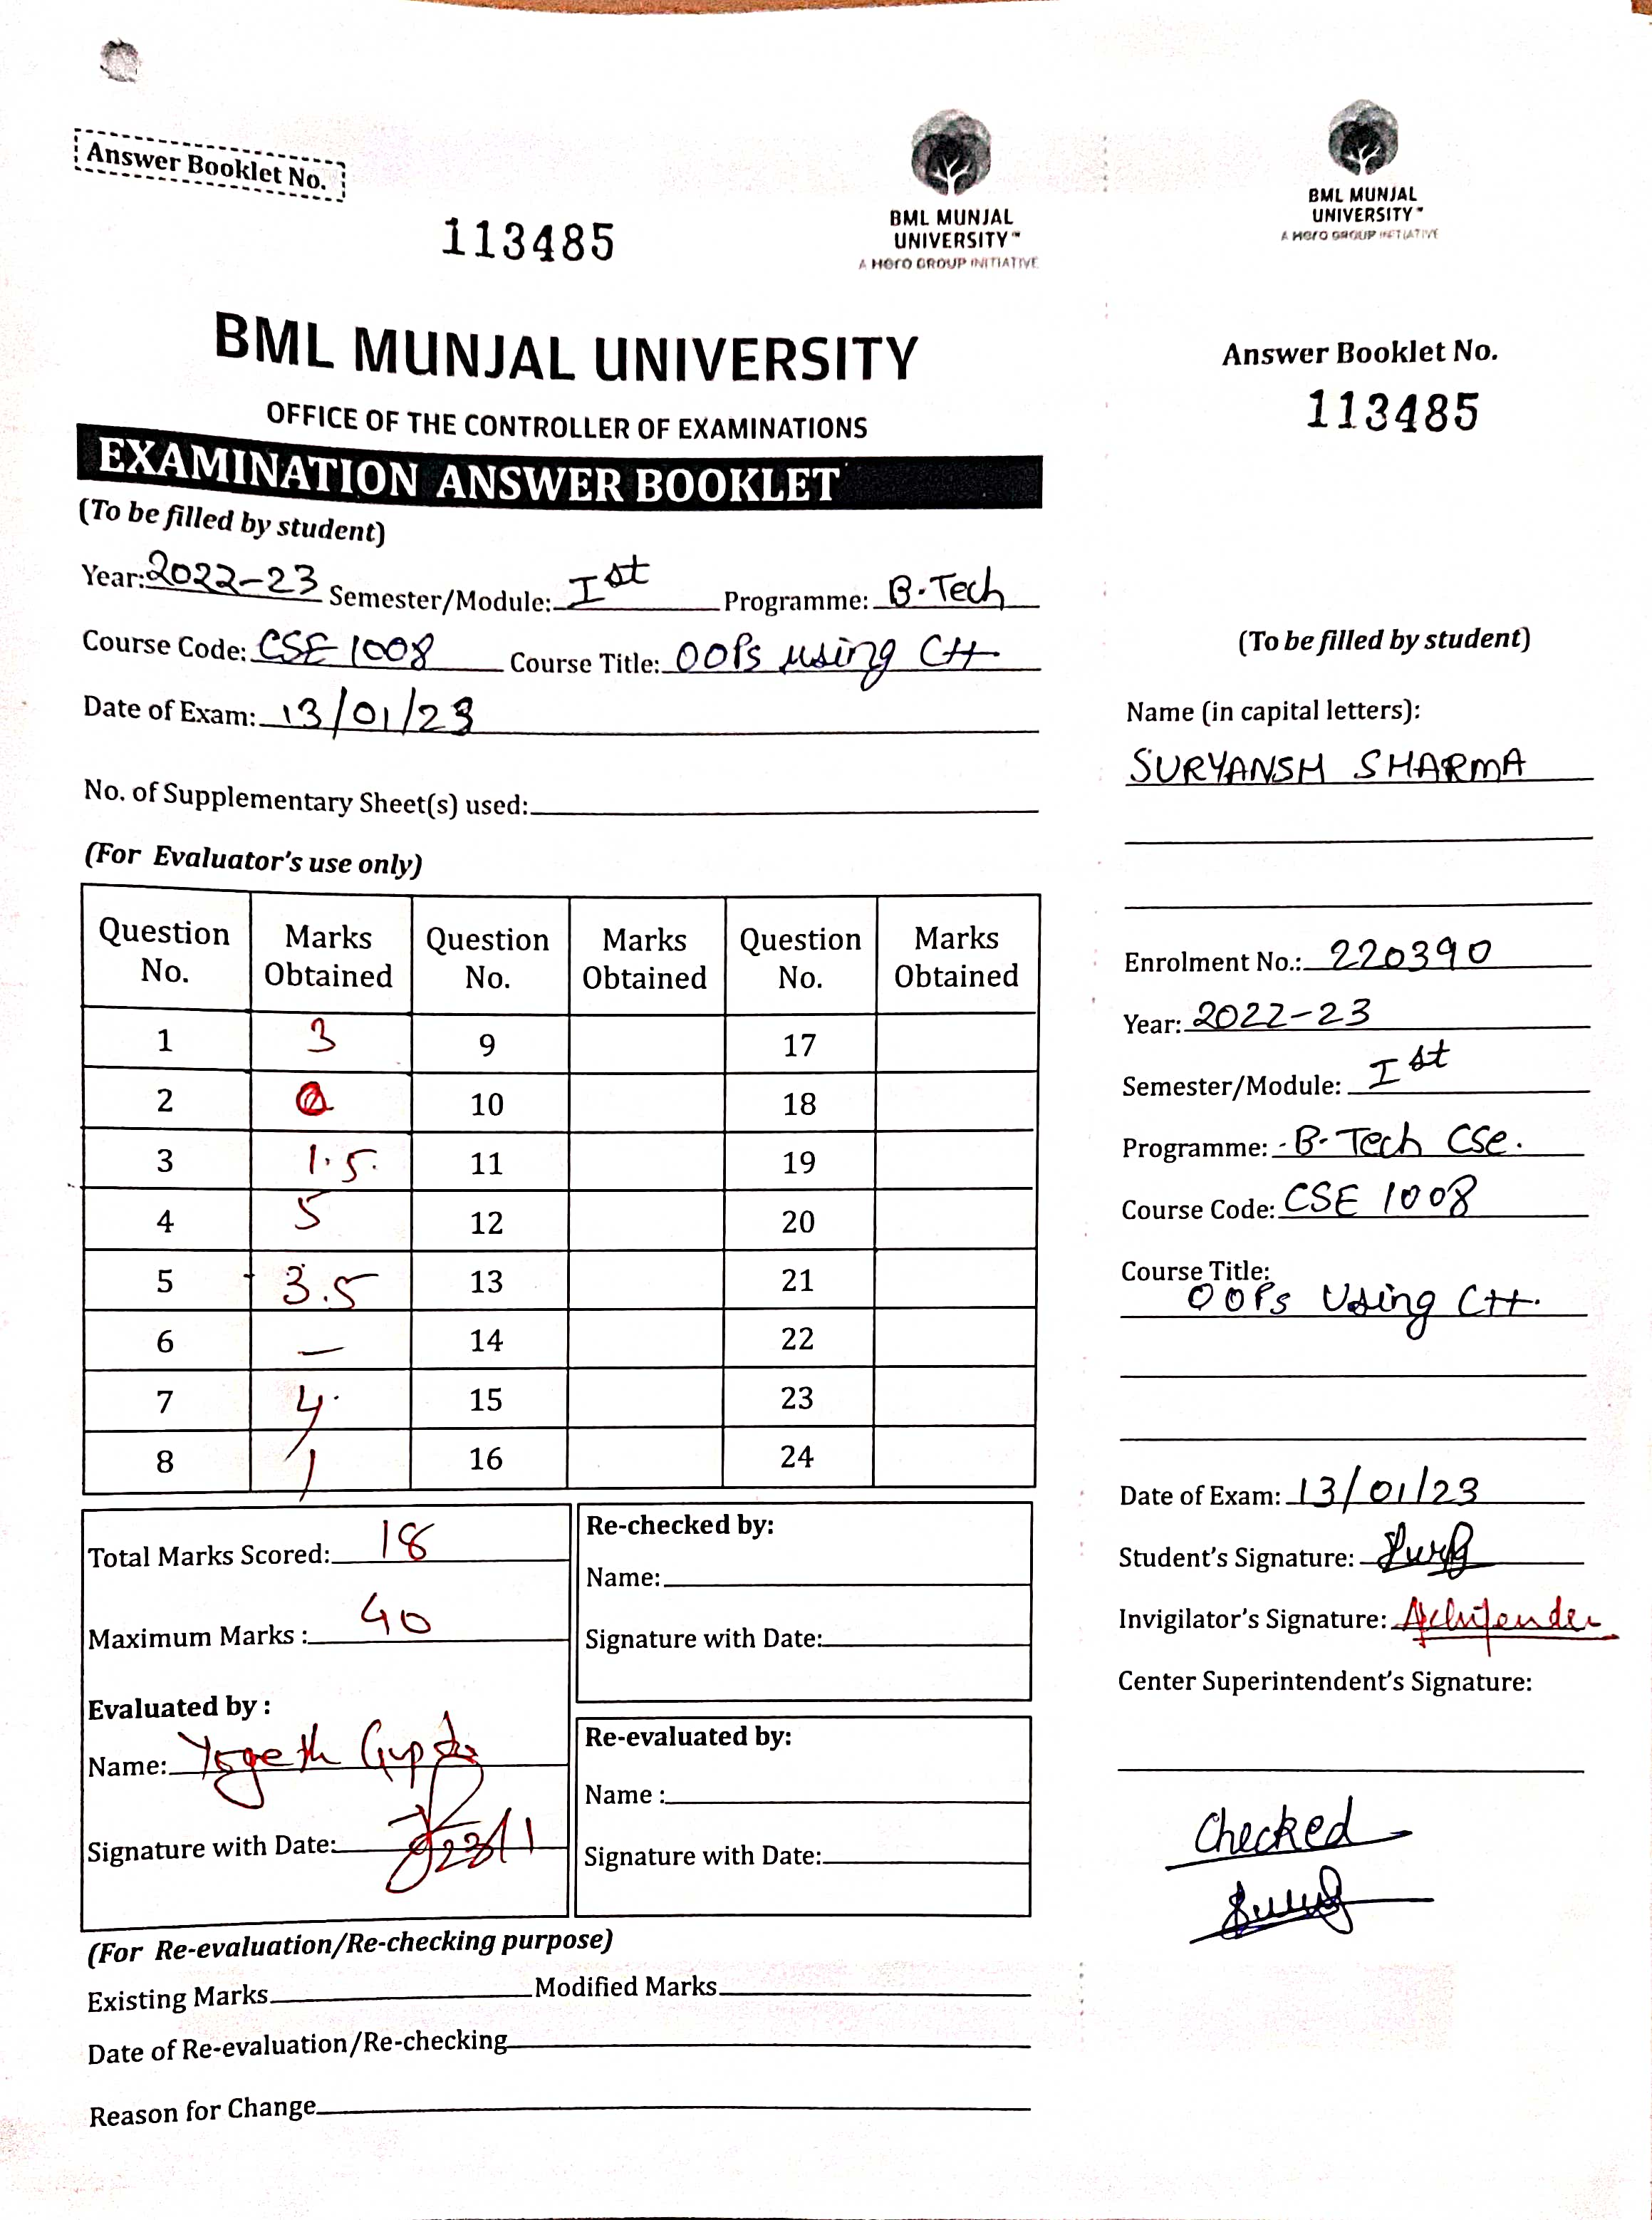 Answer Booklet No.
113485
BML MUNJAL
UNIVERSITY™
A Hero GROUP INITIATIVE
BML MUNJAL UNIVERSITY
OFFICE OF THE CONTROLLER OF EXAMINATIONS
EXAMINATION ANSWER BOOKLET
(To be filled by student)
Year: 2022-23 Semester/Module: Ist Programme: B.Tech
Course Code: CSE 1008 Course Title: OOPs using C++
Date of Exam: 13/01/23
No. of Supplementary Sheet(s) used:
(For Evaluator's use only)
Question No. Marks Obtained Question No. Marks Obtained Question No. Marks Obtained
1 3 9 17
2 10 18
3 1.5 11 19
4 5 12 20
5 3.5 13 21
6 – 14 22
7 4 15 23
8 1 16 24
Total Marks Scored: 18
Maximum Marks : 40
Evaluated by :
Name: Yogesh Gupta
Signature with Date: 23/1
Re-checked by:
Name:
Signature with Date:
Re-evaluated by:
Name :
Signature with Date:
(For Re-evaluation/Re-checking purpose)
Existing Marks Modified Marks
Date of Re-evaluation/Re-checking
Reason for Change
BML MUNJAL
UNIVERSITY™
A Hero GROUP INITIATIVE
Answer Booklet No.
113485
(To be filled by student)
Name (in capital letters):
SURYANSH SHARMA
Enrolment No.: 220390
Year: 2022-23
Semester/Module: Ist
Programme: B-Tech Cse.
Course Code: CSE 1008
Course Title:
OOPs Using C++.
Date of Exam: 13/01/23
Student's Signature:
Invigilator's Signature:
Center Superintendent's Signature:
Checked